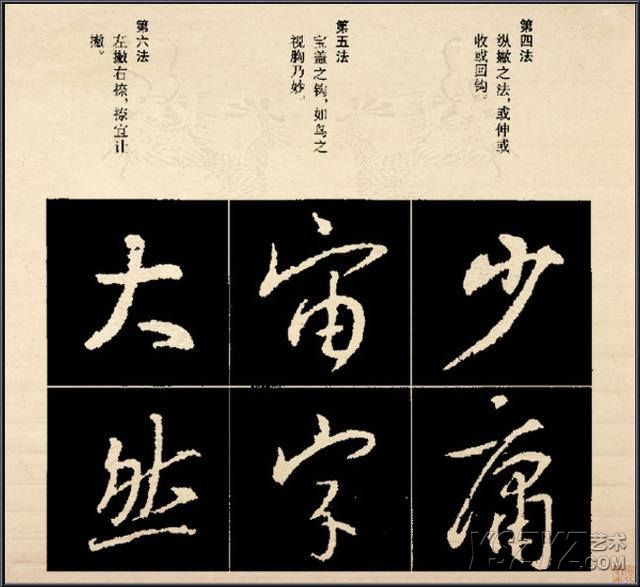 第四法
纵撇之法，或伸或
收或回钩。
第五法
宝盖之钩，如鸟之
视胸乃妙。
第六法
左撇右捺，捺宜让
撇。
少庸
宙字
大然
艺术